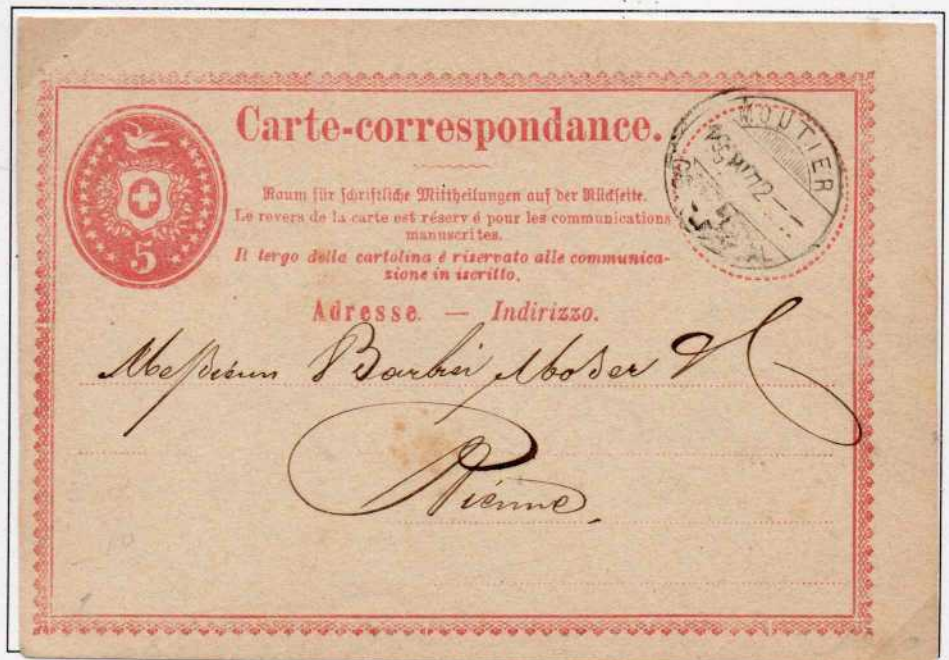 Carte-correspondance.
Raum für schriftliche Mittheilungen auf der Rückseite.
Le revers de la carte est réservé pour les communications
manuscrites.
Il tergo della cartolina é riservato alle communica-
zione in iscritto.
Adresse. — Indirizzo.
5
MOUTIER
72
Messieurs Barbier Moser & C
Bienne